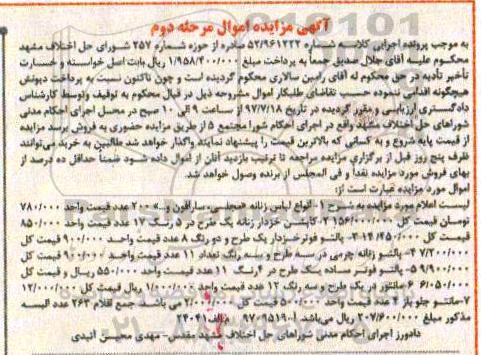 آگهی مزایده اموال مرحله دوم
به موجب پرونده اجرایی کلاسه شماره ۵۲/۹۶۱۲۲۲ صادره از حوزه شماره ۲۵۷ شورای حل اختلاف مشهد
محکوم علیه آقای جلال صدیق جمعاً به پرداخت مبلغ ۱/۹۵۸/۴۰۰/۰۰۰ ریال بابت اصل خواسته و خسارت
تأخیر تأدیه در حق محکوم له آقای رامین سالاری محکوم گردیده است و چون تاکنون نسبت به پرداخت دیونش
هیچگونه اقدامی ننموده حسب تقاضای طلبکار اموال مشروحه ذیل در قبال محکوم به توقیف وتوسط کارشناس
دادگستری ارزیابی و مقرر گردیده در تاریخ ۹۷/۷/۱۸ از ساعت ۹ الی ۱۰ صبح در محل اجرای احکام مدنی
شوراهای حل اختلاف مشهد واقع در اجرای احکام شورا مجتمع ۵ از طریق مزایده حضوری به فروش برسد مزایده
از قیمت پایه شروع و به کسانی که بالاترین قیمت را پیشنهاد نمایند واگذار خواهد شد طالبین به خرید می‌توانند
ظرف پنج روز قبل از برگزاری مزایده مراجعه تا ترتیب بازدید آنان از اموال داده شود ضمناً حداقل ده درصد از
بهای فروش مورد مزایده نقداً و فی المجلس از برنده وصول خواهد شد.
اموال مورد مزایده عبارت است از:
لیست اعلام مورد مزایده به شرح ۱-انواع لباس زنانه «مجلسی-سارافون و...» ۲۰۰ عدد قیمت واحد ۷۸۰/۰۰۰
تومان قیمت کل ۱۵۶/۰۰۰/۰۰۰ ۲-کاپشن خزدار زنانه یک طرح در ۵ رنگ ۱۷ عدد قیمت واحد ۸۵۰/۰۰۰
قیمت کل ۱۴/۴۵۰/۰۰۰ ۳-پالتو فوتر خزدار یک طرح و دو رنگ ۸ عدد قیمت واحد ۹۰۰/۰۰۰ قیمت کل
۷/۲۰۰/۰۰۰ ۴-پالتو زنانه چرمی در سه طرح و سه رنگ تعداد ۱۱ عدد قیمت واحد ۹۰۰/۰۰۰ قیمت کل
۹/۹۰۰/۰۰۰ ۵-پالتو فوتر ساده یک طرح در ۴ رنگ ۱۱ عدد قیمت واحد ۵۵۰/۰۰۰ ریال و قیمت کل
۶/۰۵۰/۰۰۰ ۶-مانتو در یک طرح و سه رنگ ۱۲ عدد قیمت واحد ۱/۰۰۰/۰۰۰ ریال قیمت کل ۱۲/۰۰۰/۰۰۰
۷-مانتو جلو باز ۴ عدد قیمت واحد ۵۰۰/۰۰۰ قیمت کل ۲/۰۰۰/۰۰۰ می باشد جمع اقلام ۲۶۳ عدد البسه
مذکور مبلغ ۲۰۷/۶۰۰/۰۰۰ ریال می‌باشد ۹۷۰۹۵۱۹۰ م الف ۲۴۰۴۱
دادورز اجرای احکام مدنی شوراهای حل اختلاف مشهد مقدس- مهدی محیسن اثیدی